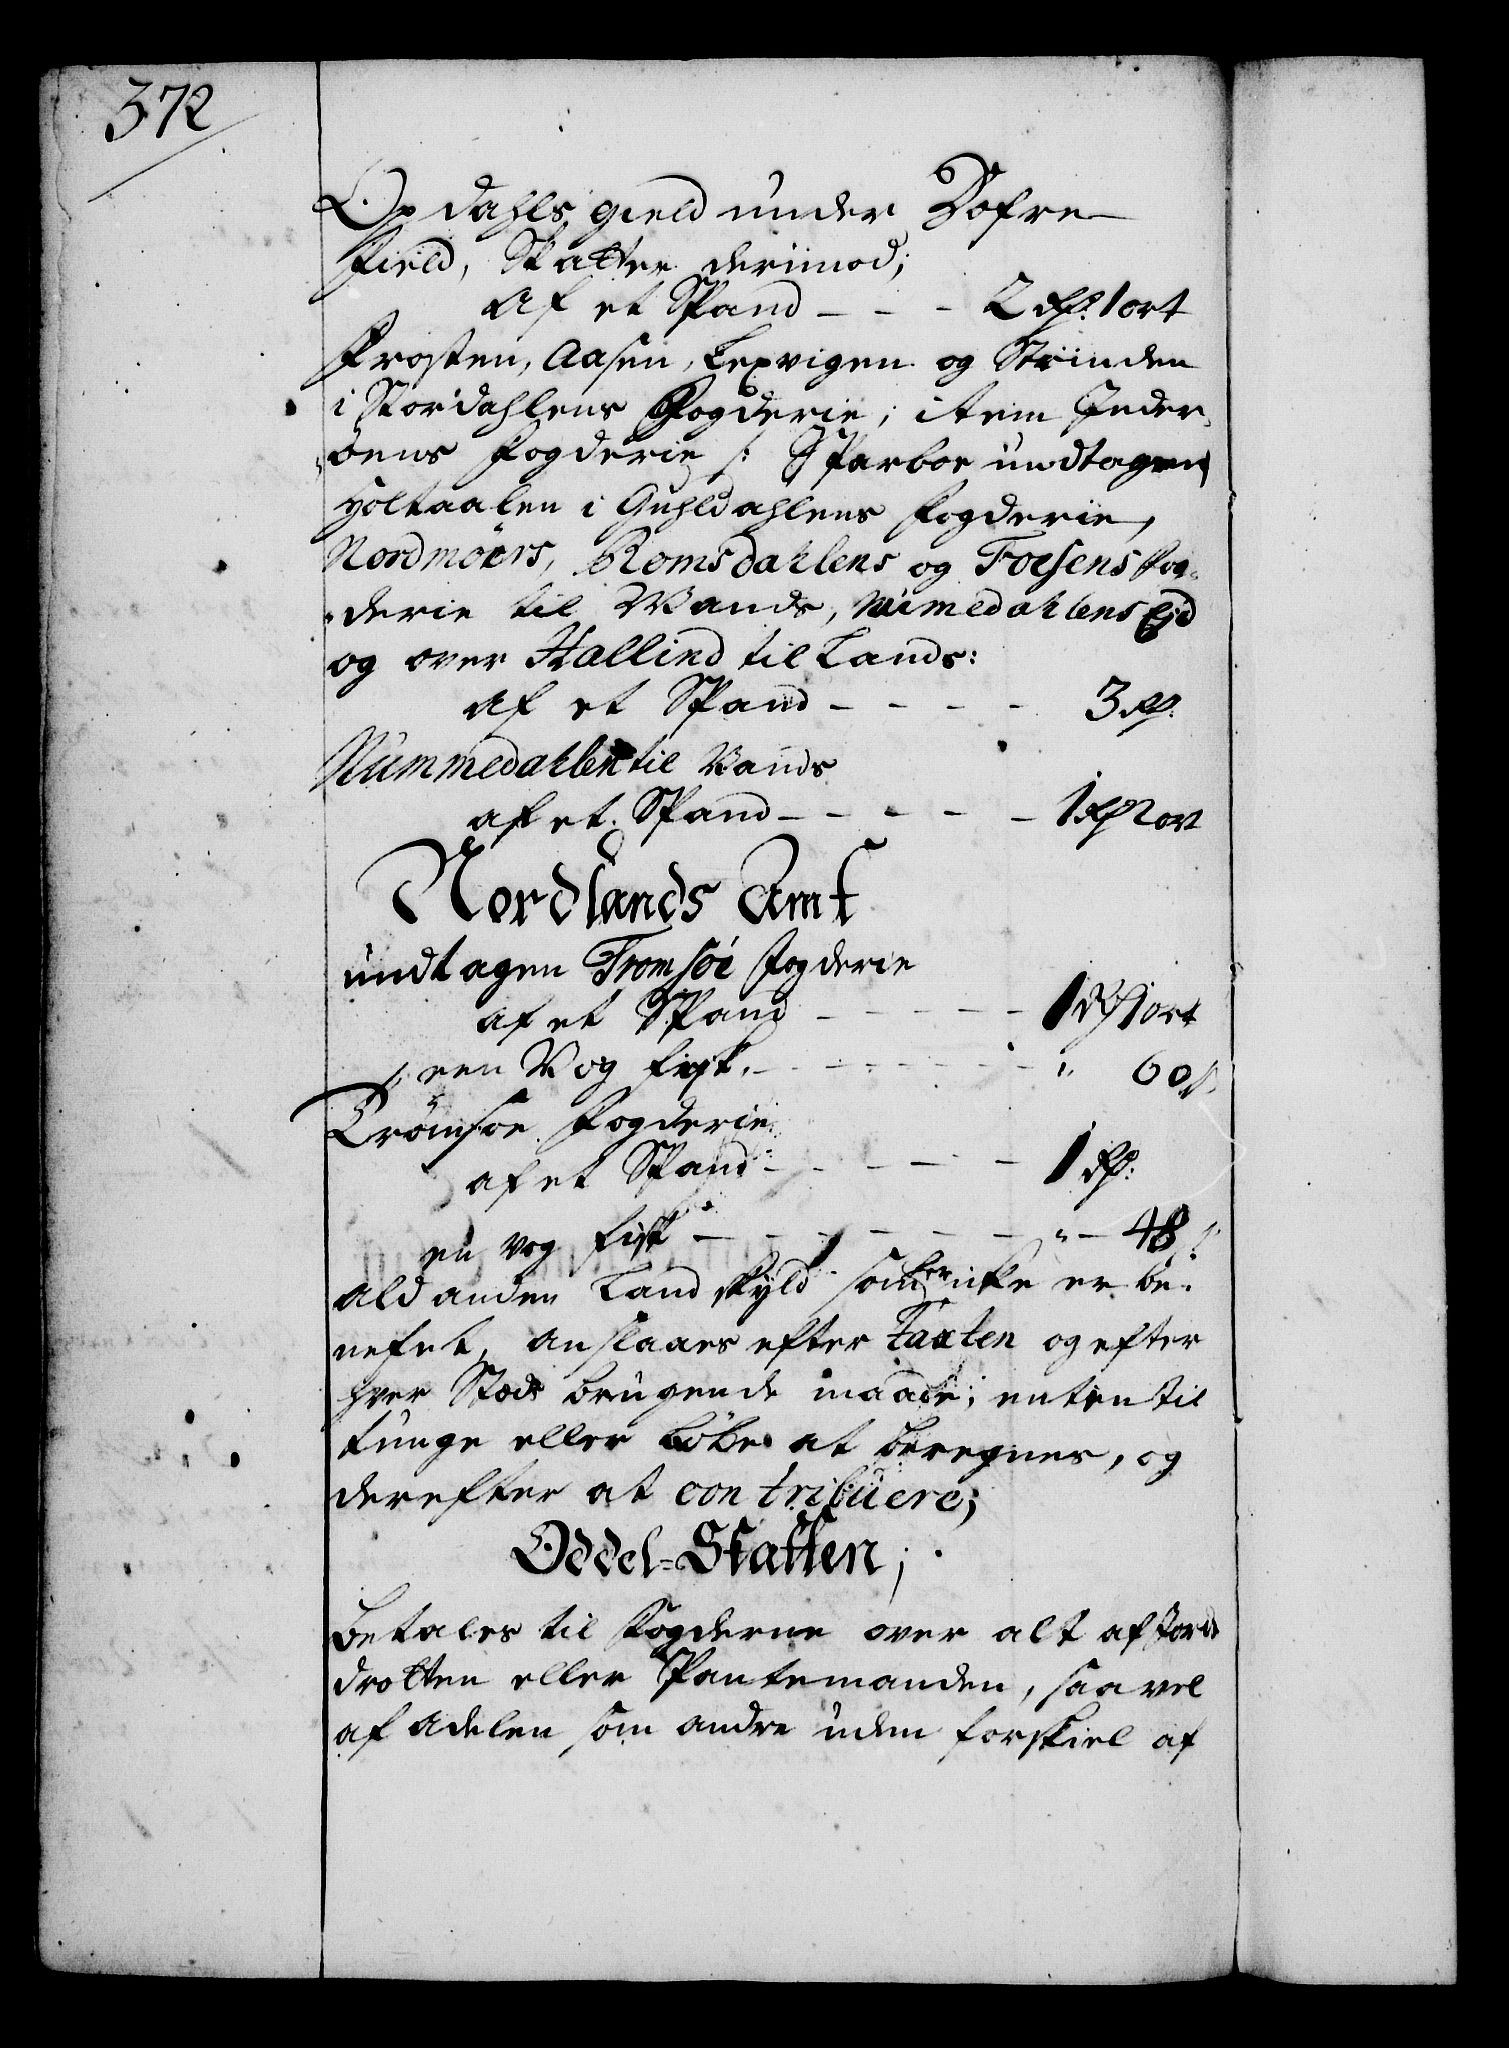 372
Opdahls gield under Dofre
Field, Skatter derimod;
Af et Spand - - - 2 Rdr. 1 ort
Frosten, Aasen, Lexvigen og Strinden
i Stordahlens Fogderie; item Inder-
öens Fogderie /: Sparboe undtagen
Holtaalen i Guhldahlens Fogderie,
Nordmöers, Romsdahlens og Foesens Fog-
derie til Vands, Numedahlens Ejd
og over Hallind til Lands:
Af et Spand - - - - 3 Rdr.
Nummedahlen til Vands
af et Spand - - - - - 1 Rdr 2 ort
Nordlands Amt
undtagen Tromsöe Fogderie
af et Spand - - - - - 1 Rdr 1 ort
een Vog fisk. - - - - - - " 60 s.
Trömsöe Fogderie
af et Spand - - - - - 1 Rdr.
en vog fisk - - - - - - - " - 48 s.
Ald anden Landskyld som her icke er be-
nefnt, anslaaes efter Taxten og efter
hver Steds brugende maade; enten til
tunge eller böber at beregnes, og
derefter at contribuere;
Oddel-Skatten;
Betales til Fogderne over alt af Jord
drotten eller Pantemanden, saavel
af Adelen som andre uden forskiel af